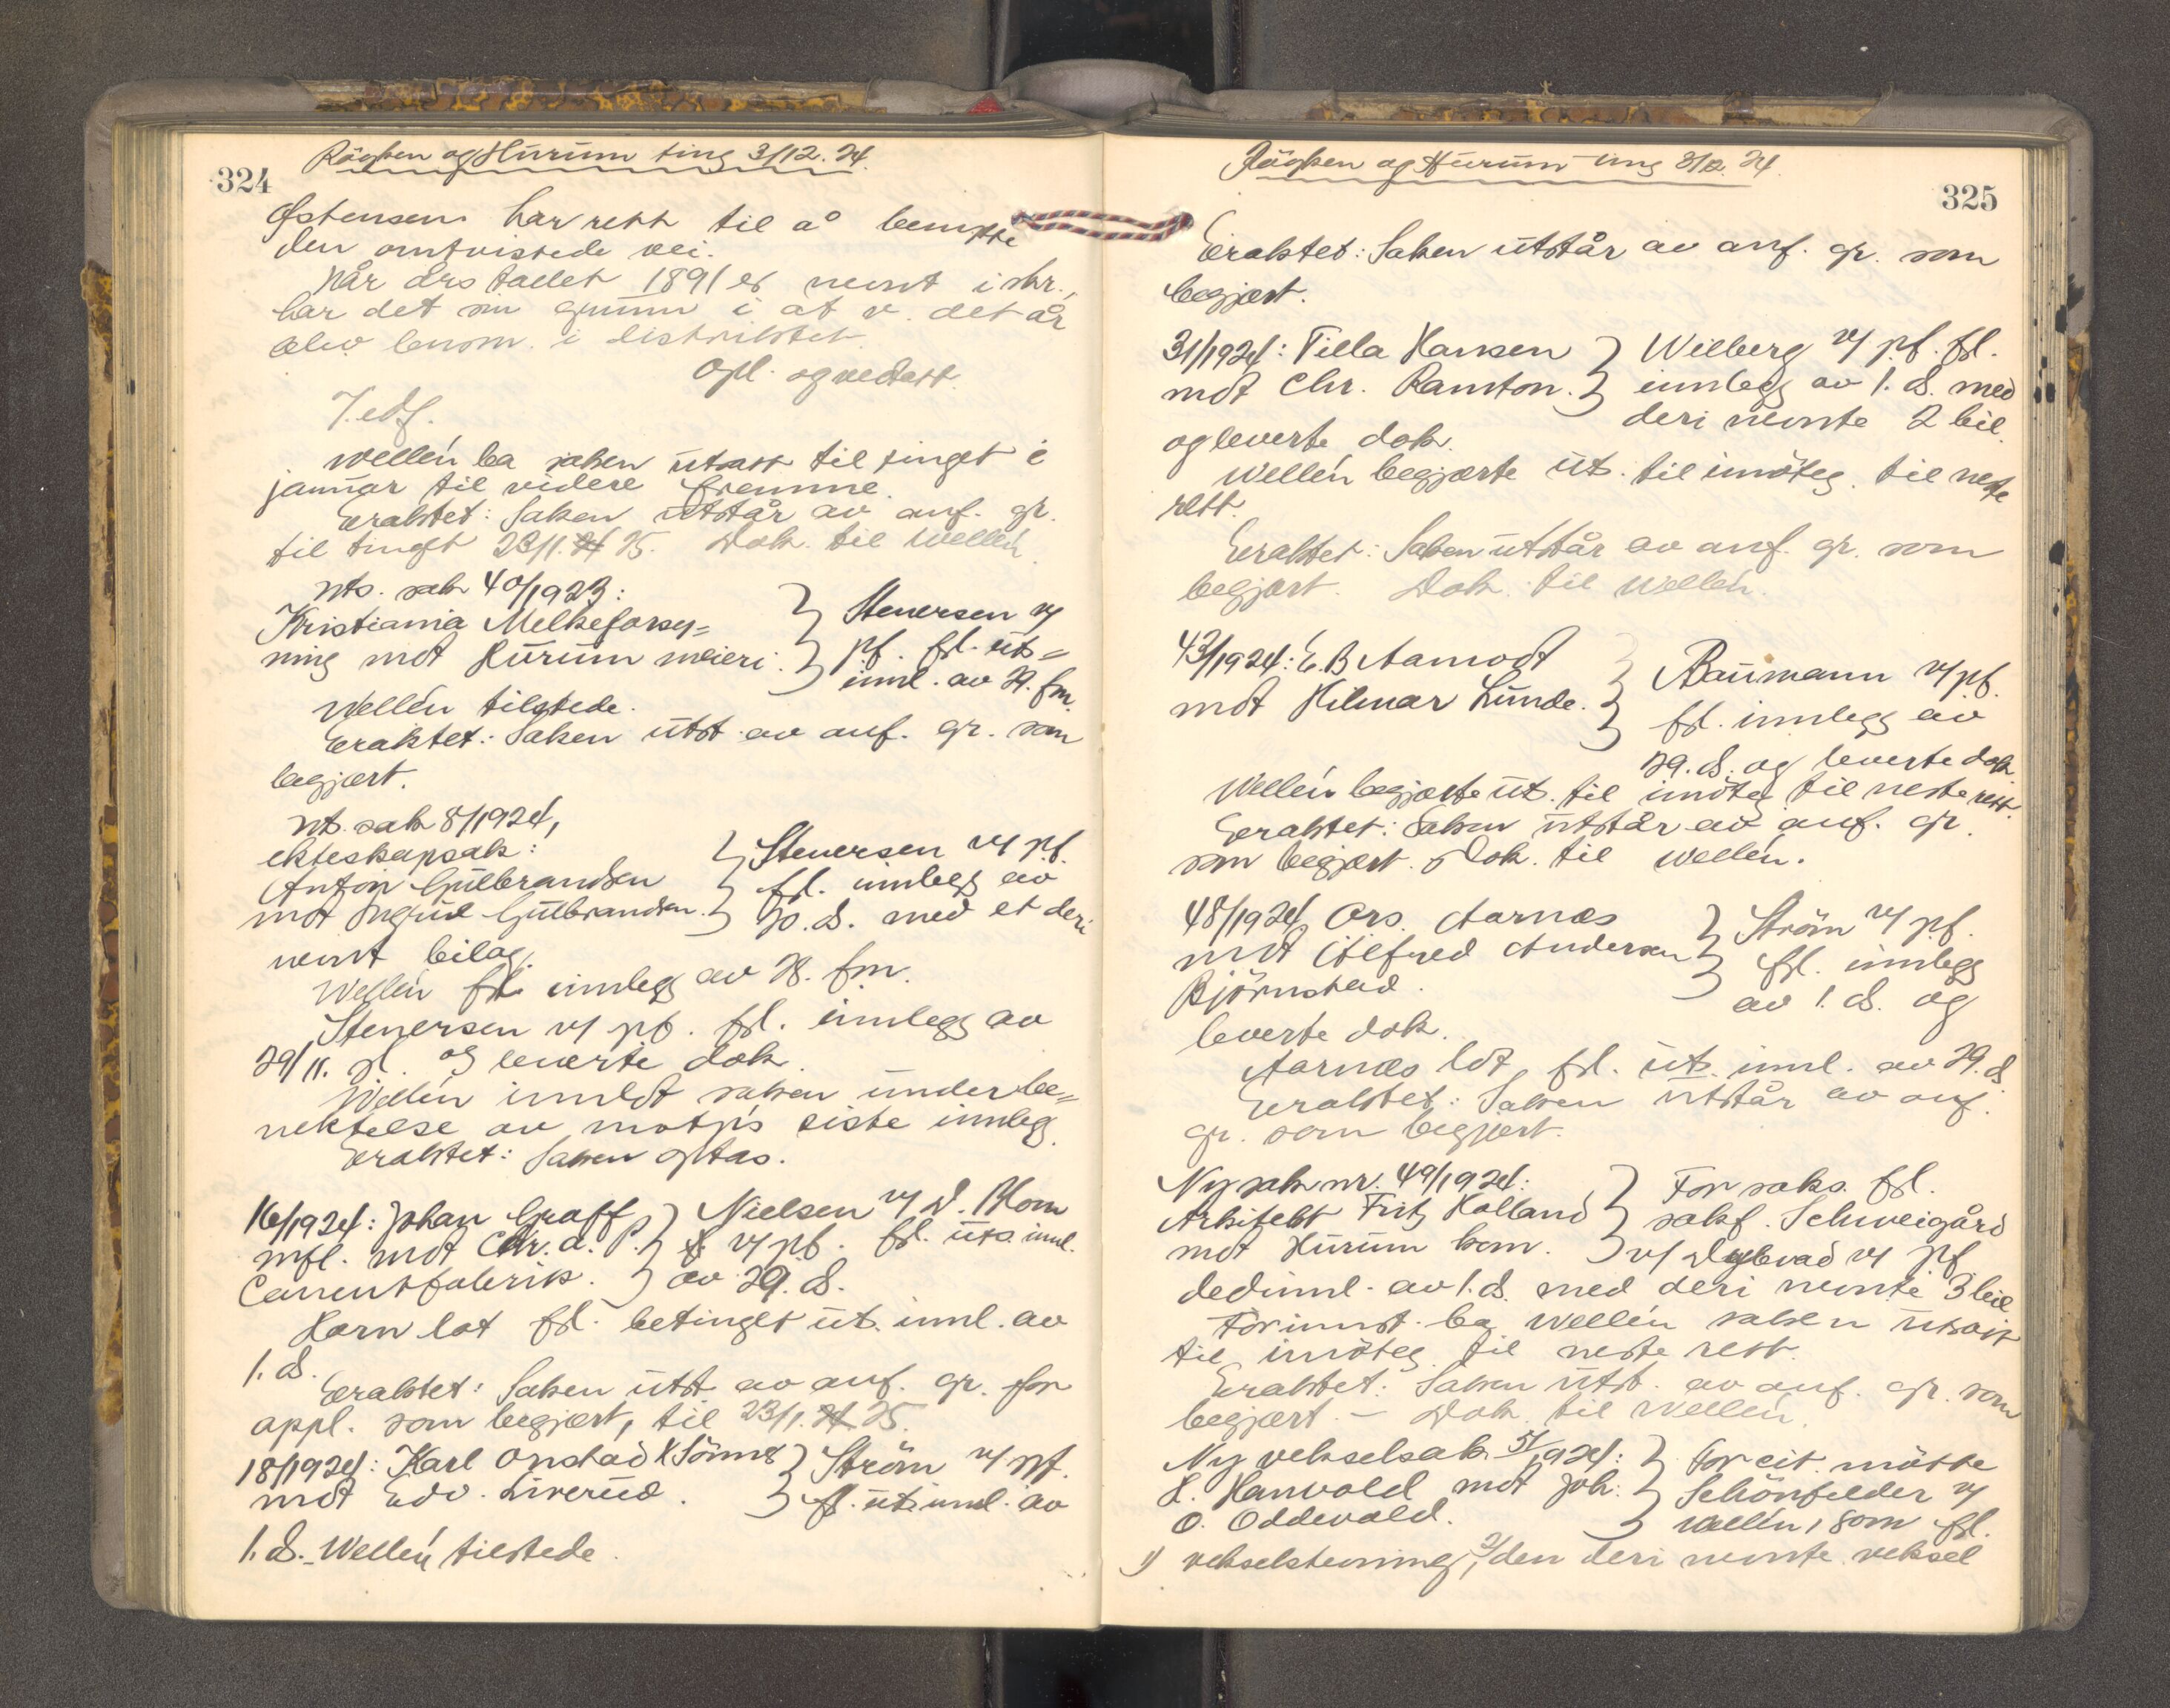 324
Röyken og Hurum ting 3/12. 24.
Østensen har rett til å benytte
den omtvistede vei.
Når årstallet 1891 er nevnt i skr.,
har det sin grunn i at v. det år
blev benom. i distriktet.
Opl. og vedtatt.
T. edf.
Wellén ba saken utsatt til tinget i
januar til videre fremme.
Eraktet: Saken utstår av anf. gr.
til tinget 23/1. 25. Dok. til Wellén
Uts. sak 40/1923:
Kristiania Melkeforsy=
ning mot Hurum meieri.
Stenersen v/
pf. fl. uts=
innl. av 29. fm.
Wellén tilstede.
Eraktet: Saken utst. av anf. gr. som
begjært.
Uts. sak 8/1924,
ekteskapsak:
Anton Gulbrandsen
mot Ingul Gulbrandsen.
Stenersen v/ pf.
fl. innlegg av
20. ds. med et deri
nevnt bilag.
Wellén fl. innlegg av 28. fm.
Stenersen v/ pf. fl. innlegg av
29/11. og leverte dok.
Wellén innlot saken under be=
nektelse av motp's siste innlegg.
Eraktet: Saken optas.
16/1924: Johan Graff
mfl. mot Chr.a. P.
Cementfabrik.
Nielsen v/ D. Blom
v/ pf. fl. uts. innl.
av 29. ds.
Horn lot fl. betinget uts. innl. av
1. ds.
Eraktet: Saken utst av anf. gr. for
appl. som begjært, til 23/1. 25
18/1924: Karl Onstad & Sønner
mot Edv. Liverud.
Ström v/ pf.
fl. uts. innl. av
1. ds. – Wellén tilstede.
Röyken og Hurum ting 3/12. 24.
325
Eraktet: Saken utstår av anf. gr. som
begjært.
31/1924: Tilla Hansen
mot Chr. Ramton.
Wilberg v/ pf. fl.
innlegg av 1. ds. med
deri nevnte 2 bil.
og leverte dok.
Wellén begjærte uts. til imöteg. til neste
rett.
Eraktet: Saken utstår av anf. gr. som
begjært. Dok. til Wellén.
43/1924: E. B. Aamodt
mot Hilmar Lunde.
Baumann v/ pf.
fl. innlegg av
29. ds. og leverte dok.
Wellén begjærte uts. til imöteg til neste rett.
Eraktet: Saken utstår av anf. gr.
som begjært. Dok. til Wellén.
48/1924, Ors. Aarnæs
mot Alfred Andersen
Björnstad.
Ström v/ pf.
fl. innlegg
av 1. ds. og
leverte dok.
Aarnæs lot fl. uts. innl. av 29. ds
Eraktet: Saken utstår av anf.
gr. som begjært.
Ny sak nr. 49/1924:
Arkitekt Fritz Holland
mot Hurum kom.
For saks. fl.
sakf. Schweigård
v/ Dybwad v/ pf
ded innl. av 1. ds. med deri nevnte 3 bil
For innst. ba Wellén saken utsatt
til imöteg. til neste rett.
Eraktet: Saken utst. av anf. gr. som
begjært. – Dok. til Wellén.
Ny vekselsak 51/1924:
H. Hanvold mot Joh.
O. Oddevald.
For cit. mötte
Schönfelder v/
Wellén, som fl.
1) vekselstevning, 2) den deri nevnte veksel